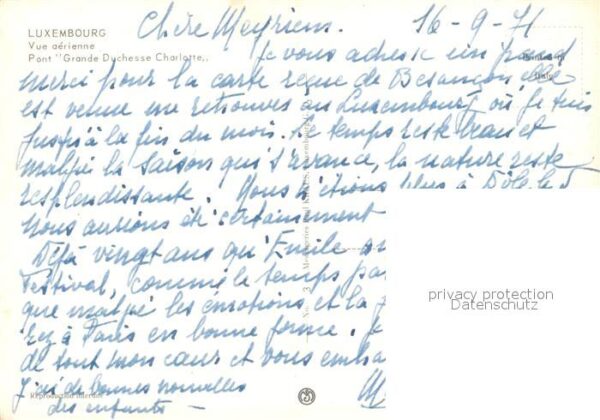 LUXEMBOURG
Vue aérienne
Pont "Grande Duchesse Charlotte"
Chère 16-9-71
Je vous adresse un grand
merci pour la carte reçue de Besançon elle
est venue me retrouver au Luxembourg où je suis
jusqu'à la fin du mois. Le temps reste beau et
malgré la saison qui s'avance, la nature reste
resplendissante. Nous n'étions plus à Dôle
nous aurions été certainement
Déjà vingt ans qu'Emile
Festival, comme le temps pas
que malgré les émotions et la
rez à Paris en bonne forme. Je
de tout mon cœur et vous embra
J'ai de bonnes nouvelles
des enfants
privacy protection
Datenschutz
Reproduction interdite